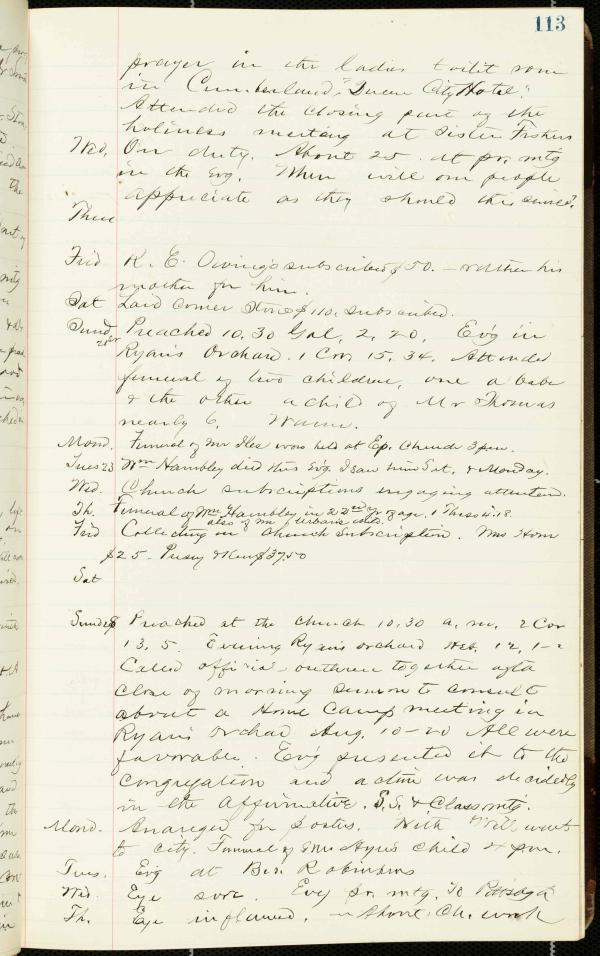 113
prayer in the ladies toilet room
in Cumberland, "Queen City Hotel".
Attended the closing part of the
holiness meeting at Sister Fishers
Wed. On duty. About 25 at pr. mtg
in the Evg. When will our people
appreciate as they should this service?
Thur
Frid K. E. Owings subscribed $50. — rather his
mother for him.
Sat Laid Corner Stone $110. subscribed.
Sund Preached 10.30 Gal. 2, 20. Evg in
Ryan's Orchard. 1 Cor 15, 34. Attended
funeral of two children, one a babe
& the other a child of Mr Thomas
nearly 6. Warm.
Mond. Funeral of Mr Iles was held at Ep. Church 3 p.m.
Tues 23 Wm Hambley died this Evg. I saw him Sat. & Monday.
Wed. Church subscriptions engaging attention.
Th. Funeral of Wm Hambley in 22nd yr of age. 1 Thess 4:18.
also of Mr
Frid Collecting on Church Subscription. Mrs
$25. $37.50
Sat
Sund 28 Preached at the church 10.30 a.m. 2 Cor
13, 5. Evening Ryans orchard Heb. 12, 1-2
Called together after
close of morning sermon to consult
about a Home Camp meeting in
Ryans Orchad Aug. 10-20 All were
favorable. Evg presented it to the
congregation and action was decidedly
in the affirmative. S.S. & Class mtg.
Mond. Arranged for posters. With Will went
to city. Funeral of Mr Ayres child 2 p.m.
Tues. Evg at Bro. Robinsons
Wed. Eye sore. Evg pr. mtg.
Th. Eye inflamed. Ch. work